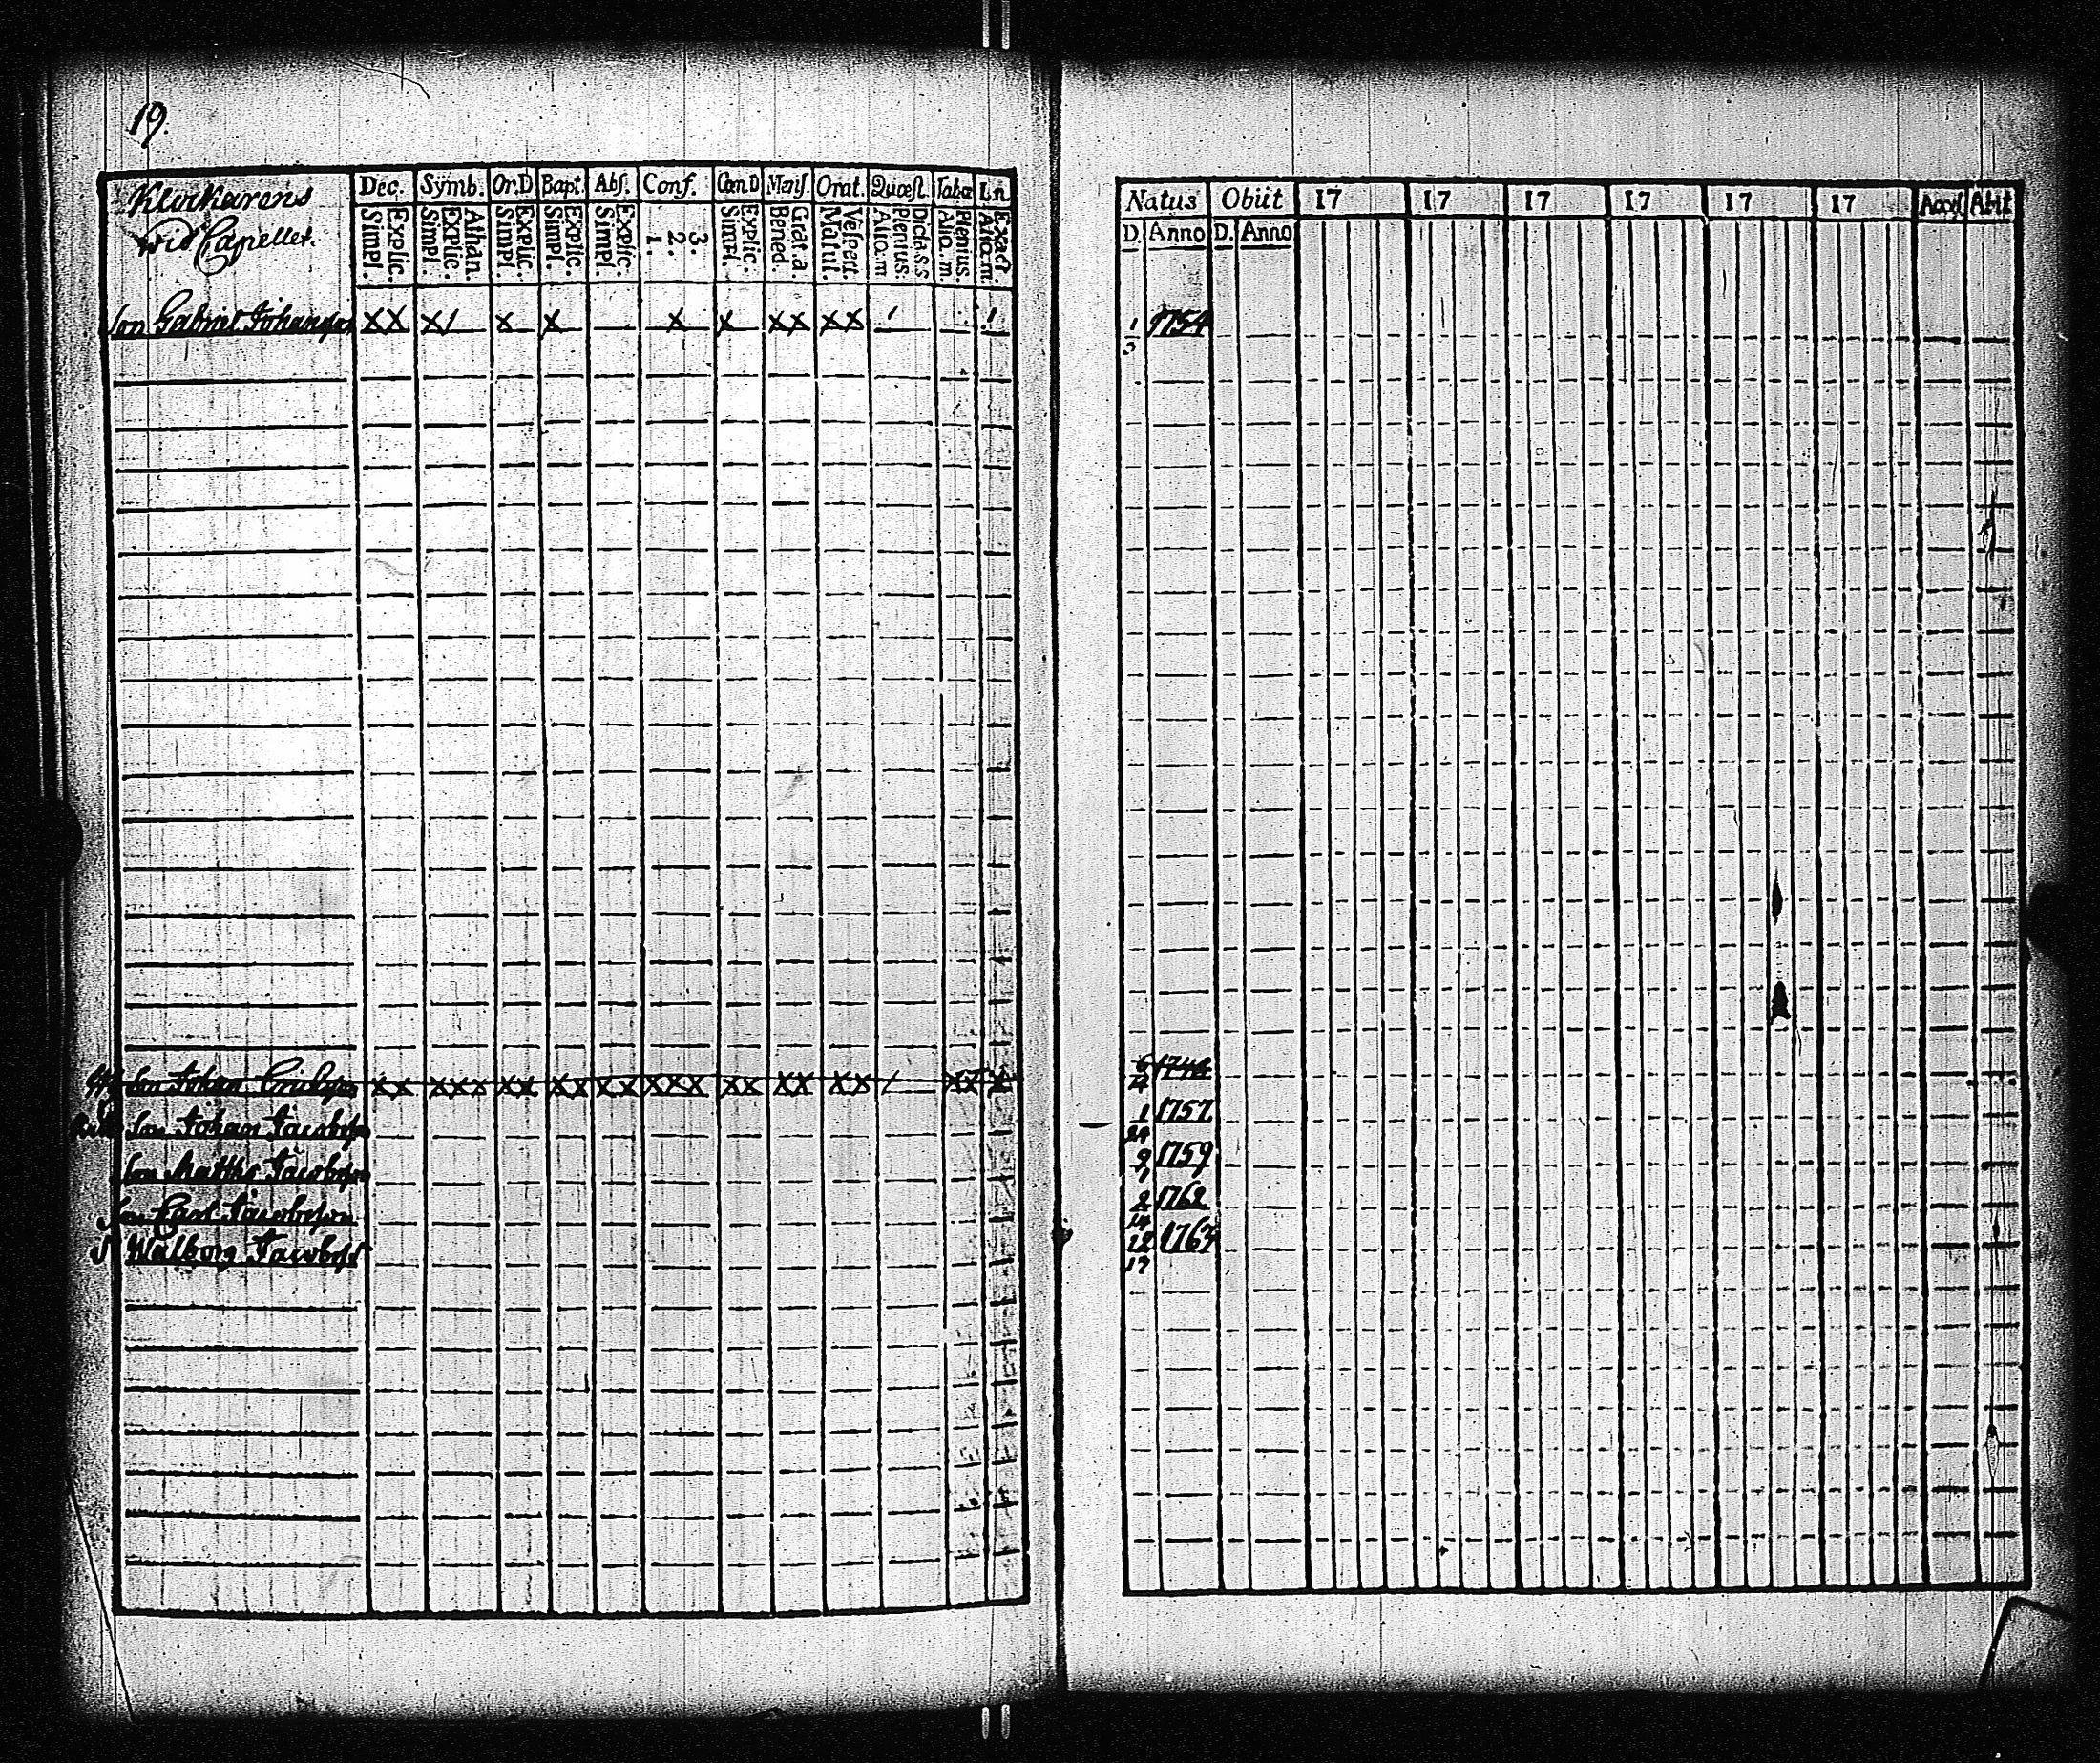 19.
Klockarens
wid Capellet.
Dec. Symb. Or.D Bapt. Abs. Conf. Cœn.D Mens. Orat. Quæst. Tabœ Ln.
Simpl. Explic. Simpl. Explic. Athan. Simpl. Explic. Simpl. Explic. Simpl. Explic. 1. 2. 3. Simpl. Explic. Bened. Grat.a. Matut. Vespert. Aliq.m Plenius. Dicta.s.s Aliq.m. Plenius. Aliq.m. Exact.
Son Gabriel Johansson XX X/ X X X X XX XX / /
Son Johan XX XXX XX XX XX XXX XX XX XX / XX
Son Johan Jacobsson
Son Matths Jacobsson
Son Carl Jacobsson
Walborg Jacobsd
Natus Obiit 17 17 17 17 17 17 Accest Abiit
D. Anno D. Anno
1 3 1754
6
1 24 1757
9 7 1759
2 14 1762
12 17 1764